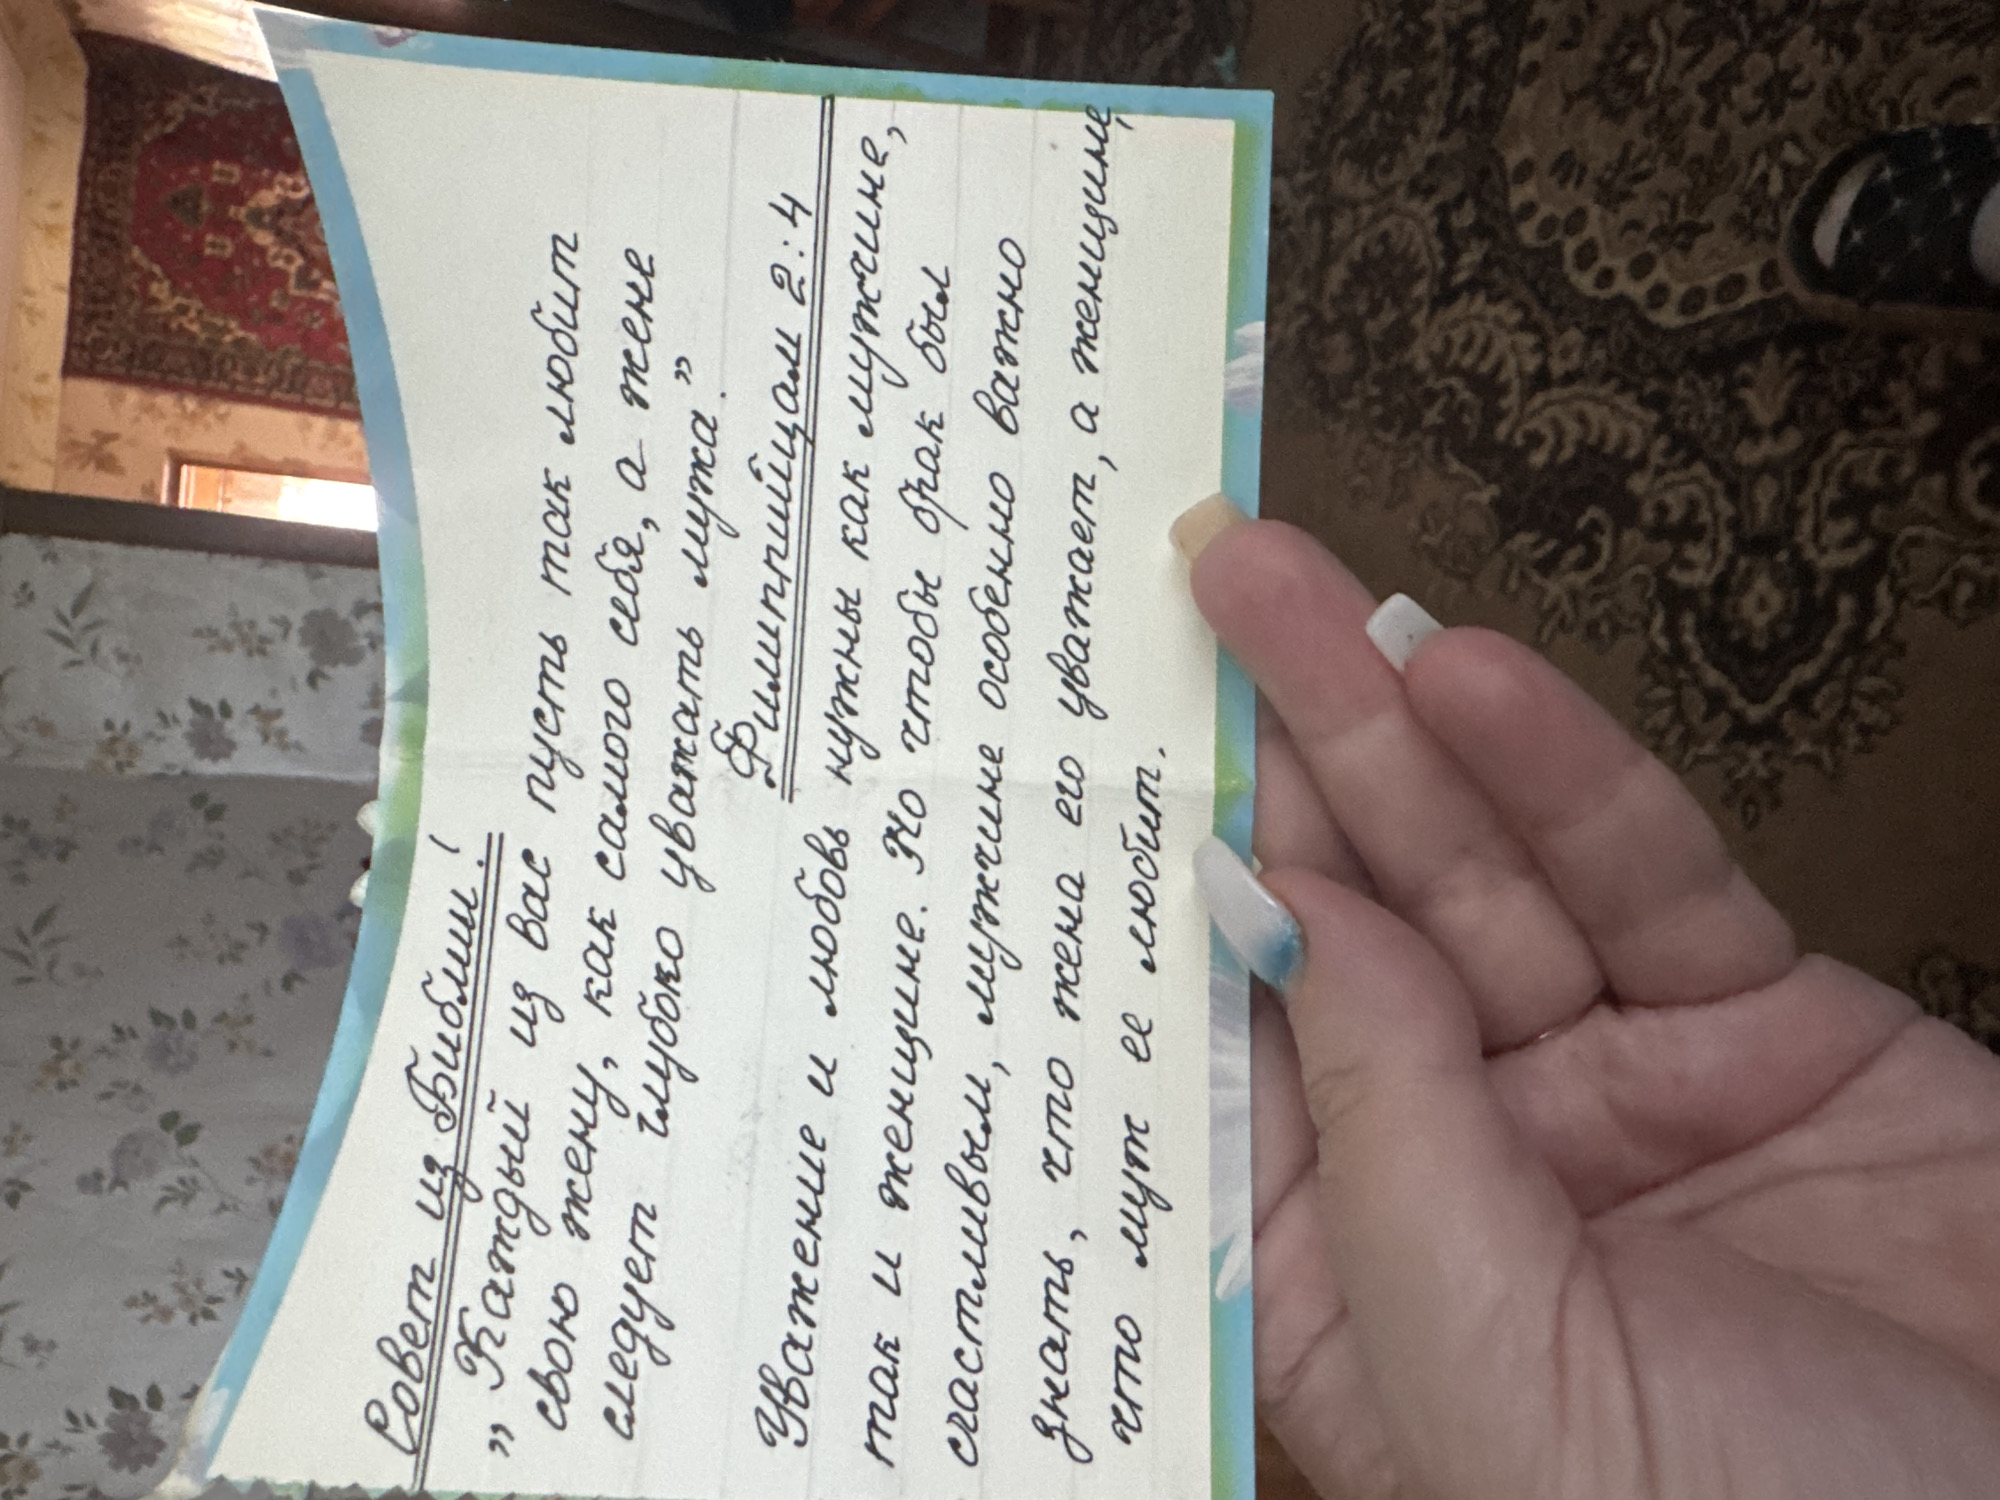 Совет из Библии!
„Каждый из вас пусть так любит
свою жену, как самого себя, а жене
следует глубоко уважать мужа”.
Филиппийцам 2:4
Уважение и любовь нужны как мужчине,
так и женщине. Но чтобы брак был
счастливым, мужчине особенно важно
знать, что жена его уважает, а женщине,
что муж ее любит.